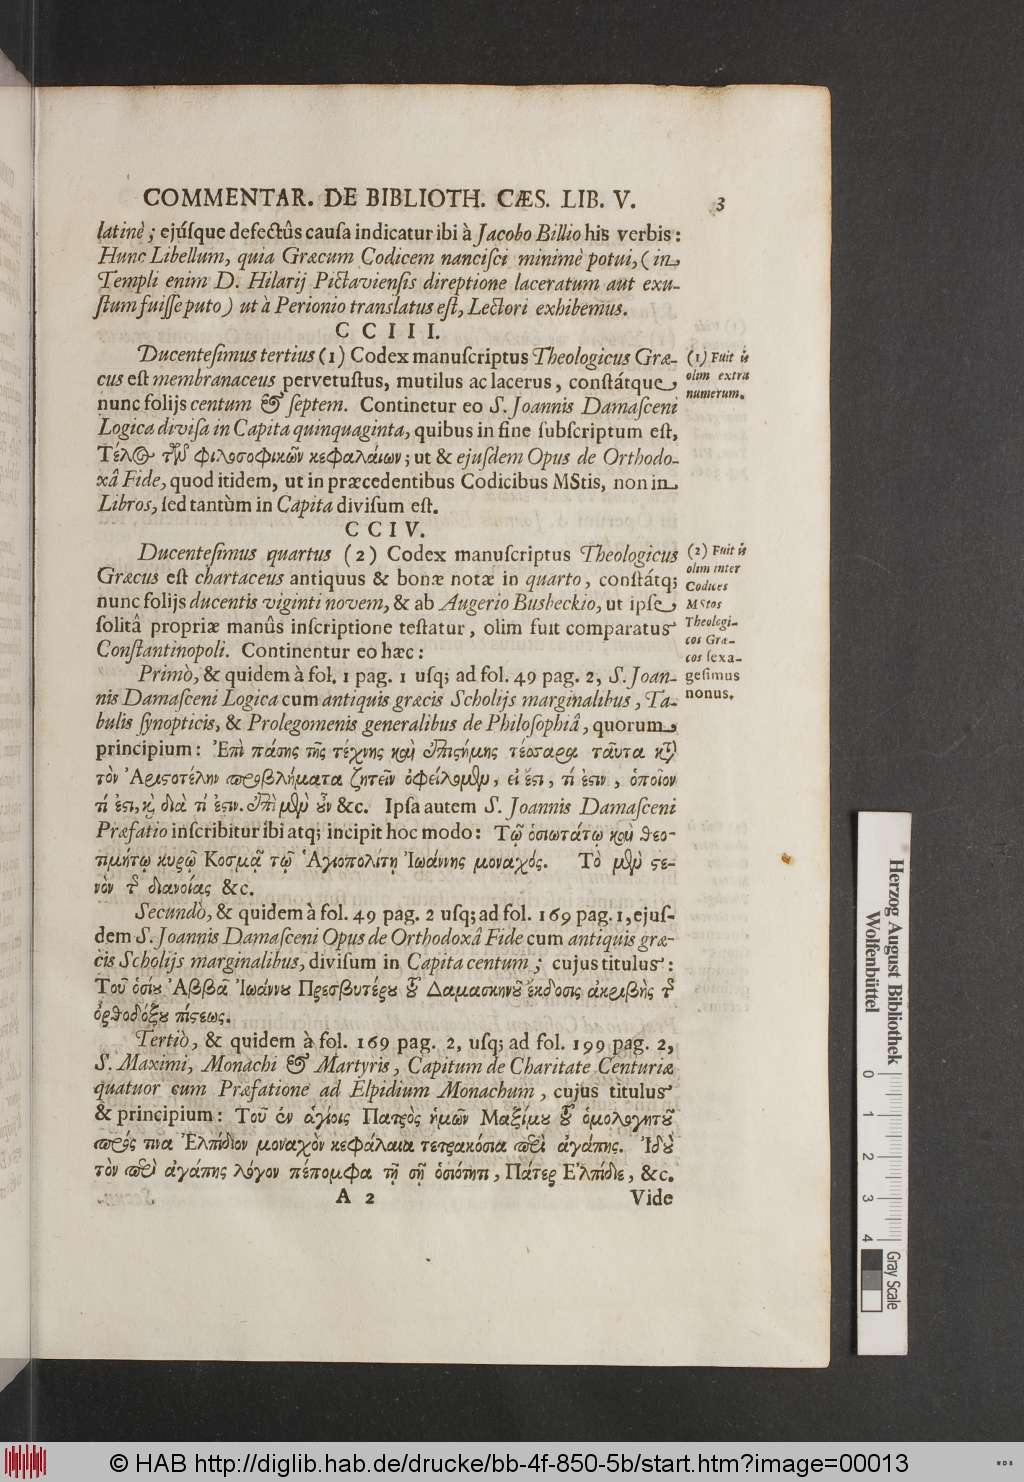 COMMENTAR. DE BIBLIOTH. CÆS. LIB. V. 3
latinè; ejúſque defectûs cauſa indicatur ibi à Jacobo Billio his verbis:
Hunc Libellum, quia Græcum Codicem nanciſci minimè potui, (in
Templi enim D. Hilarij Pictavienſis direptione laceratum aut exu-
ſtum fuiſſe puto) ut à Perionio translatus eſt, Lectori exhibemus.
C C I I I.
Ducenteſimus tertius (1) Codex manuſcriptus Theologicus Græ-
cus eſt membranaceus pervetuſtus, mutilus ac lacerus, conſtátque
nunc folijs centum & ſeptem. Continetur eo S. Joannis Damaſceni
Logica diviſa in Capita quinquaginta, quibus in fine ſubſcriptum eſt,
Τέλος τῶν φιλοσοφικῶν κεφαλαίων; ut & ejuſdem Opus de Orthodo-
xâ Fide, quod itidem, ut in præcedentibus Codicibus MStis, non in
Libros, ſed tantùm in Capita diviſum eſt.
(1) Fuit is
olim extra
numerum.
C C I V.
Ducenteſimus quartus (2) Codex manuſcriptus Theologicus
Græcus eſt chartaceus antiquus & bonæ notæ in quarto, conſtátq;
nunc folijs ducentis viginti novem, & ab Augerio Busbeckio, ut ipſe
ſolitâ propriæ manûs inſcriptione teſtatur, olim fuit comparatus
Conſtantinopoli. Continentur eo hæc:
(2) Fuit is
olim inter
Codices
MStos
Theologi-
cos Græ-
cos ſexa-
geſimus
nonus.
Primò, & quidem à fol. 1 pag. 1 uſq; ad fol. 49 pag. 2, S. Joan-
nis Damaſceni Logica cum antiquis græcis Scholijs marginalibus, Ta-
bulis ſynopticis, & Prolegomenis generalibus de Philoſophiâ, quorum
principium: Ἐπὶ πάσης τῆς τέχνης καὶ ἐπιστήμης τέσσαρα ταῦτα κατὰ
τὸν Ἀριστοτέλην προβλήματα ζητεῖν ὀφείλομεν, εἰ ἔστι, τί ἐστιν, ὁποῖον
τί ἐστι, καὶ διὰ τί ἐστιν. Ἐπὶ μὲν οὖν &c. Ipſa autem S. Joannis Damaſceni
Præfatio inſcribitur ibi atq; incipit hoc modo: Τῷ ὁσιωτάτῳ καὶ θεο-
τιμήτῳ κυρῷ Κοσμᾷ τῷ Ἁγιοπολίτῃ Ἰωάννης μοναχός. Τὸ μὲν στε-
νὸν τῆς διανοίας &c.
Secundò, & quidem à fol. 49 pag. 2 uſq; ad fol. 169 pag. 1, ejuſ-
dem S. Joannis Damaſceni Opus de Orthodoxâ Fide cum antiquis græ-
cis Scholijs marginalibus, diviſum in Capita centum; cujus titulus:
Τοῦ ὁσίου Ἀββᾶ Ἰωάννου Πρεσβυτέρου τοῦ Δαμασκηνοῦ ἔκδοσις ἀκριβὴς τῆς
ὀρθοδόξου πίστεως.
Tertiò, & quidem à fol. 169 pag. 2, uſq; ad fol. 199 pag. 2,
S. Maximi, Monachi & Martyris, Capitum de Charitate Centuriæ
quatuor cum Præfatione ad Elpidium Monachum, cujus titulus
& principium: Τοῦ ἐν ἁγίοις Πατρὸς ἡμῶν Μαξίμου τοῦ ὁμολογητοῦ
πρός τινα Ἐλπίδιον μοναχὸν κεφάλαια τετρακόσια περὶ ἀγάπης. Ἰδοὺ
τὸν περὶ ἀγάπης λόγον πέπομφα τῇ σῇ ὁσιότητι, Πάτερ Ἐλπίδιε, &c.
A 2 Vide
Herzog August Bibliothek
Wolfenbüttel
0 1 2 3 4
Gray Scale
© HAB http://diglib.hab.de/drucke/bb-4f-850-5b/start.htm?image=00013